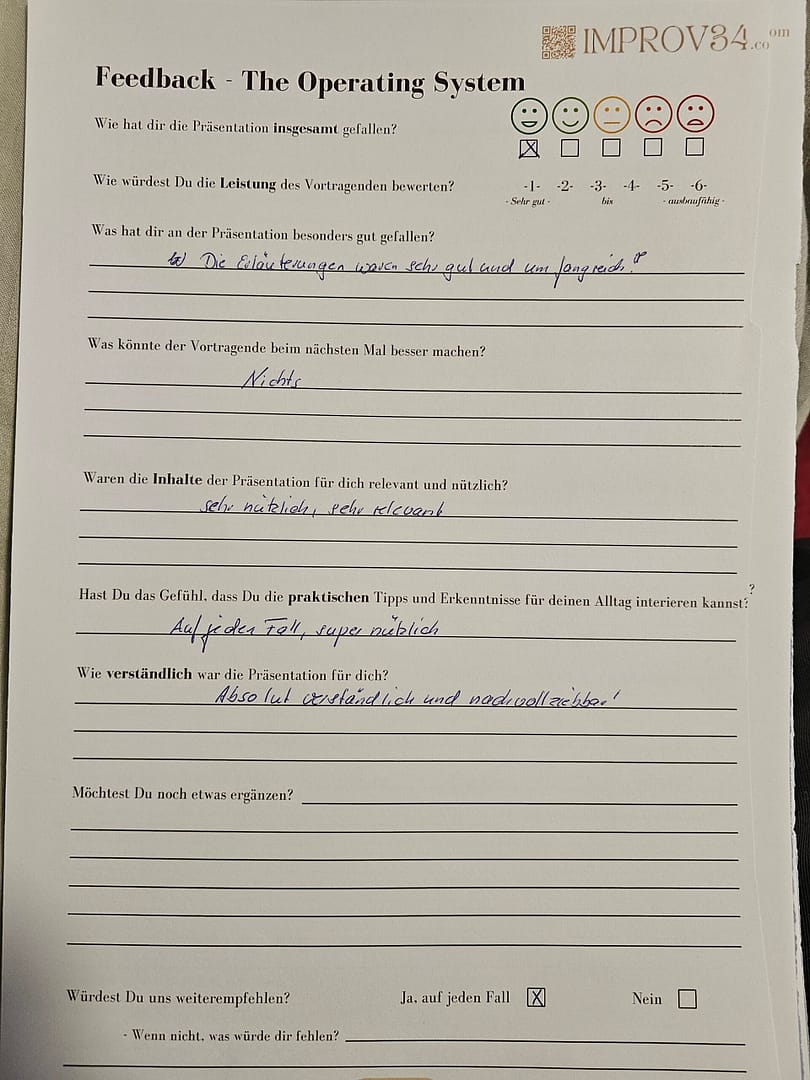 IMPROV34.com
Feedback - The Operating System
Wie hat dir die Präsentation insgesamt gefallen?
Wie würdest Du die Leistung des Vortragenden bewerten? -1- -2- -3- -4- -5- -6-
- Sehr gut - bis - ausbaufähig -
Was hat dir an der Präsentation besonders gut gefallen?
Die Erläuterungen waren sehr gut und umfangreich!
Was könnte der Vortragende beim nächsten Mal besser machen?
Nichts
Waren die Inhalte der Präsentation für dich relevant und nützlich?
sehr nützlich, sehr relevant
Hast Du das Gefühl, dass Du die praktischen Tipps und Erkenntnisse für deinen Alltag interieren kannst?
?
Auf jeden Fall, super nützlich
Wie verständlich war die Präsentation für dich?
Absolut verständlich und nachvollziehbar!
Möchtest Du noch etwas ergänzen?
Würdest Du uns weiterempfehlen? Ja, auf jeden Fall X Nein
- Wenn nicht, was würde dir fehlen?